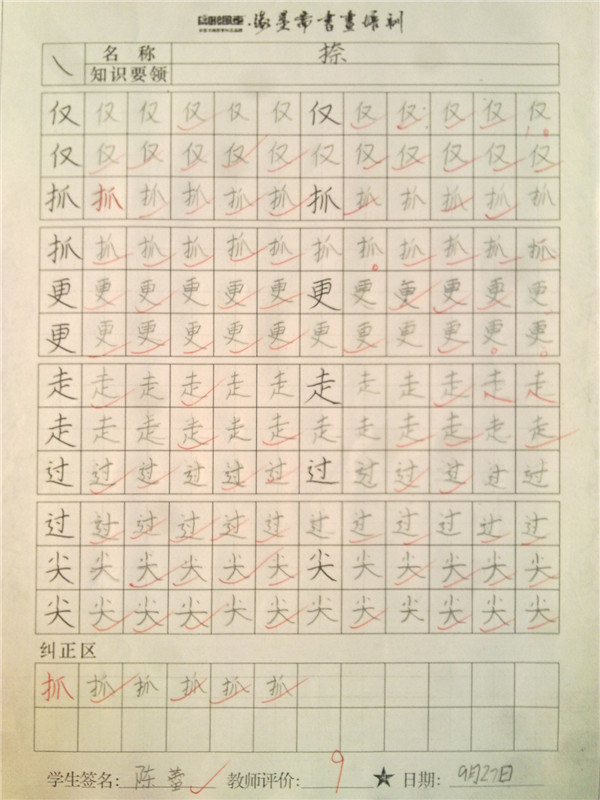 书画培训
㇏ 名称 捺
知识要领
仅 仅 仅 仅 仅 仅 仅 仅 仅 仅 仅 仅
仅 仅 仅 仅 仅 仅 仅 仅 仅 仅 仅 仅
抓 抓 抓 抓 抓 抓 抓 抓 抓 抓 抓 抓
抓 抓 抓 抓 抓 抓 抓 抓 抓 抓 抓 抓
更 更 更 更 更 更 更 更 更 更 更 更
更 更 更 更 更 更 更 更 更 更 更 更
走 走 走 走 走 走 走 走 走 走 走 走
走 走 走 走 走 走 走 走 走 走 走 走
过 过 过 过 过 过 过 过 过 过 过 过
过 过 过 过 过 过 过 过 过 过 过 过
尖 尖 尖 尖 尖 尖 尖 尖 尖 尖 尖 尖
尖 尖 尖 尖 尖 尖 尖 尖 尖 尖 尖 尖
纠正区
抓 抓 抓 抓 抓 抓
学生签名: 陈萱 教师评价: 9 ★ 日期: 9月27日